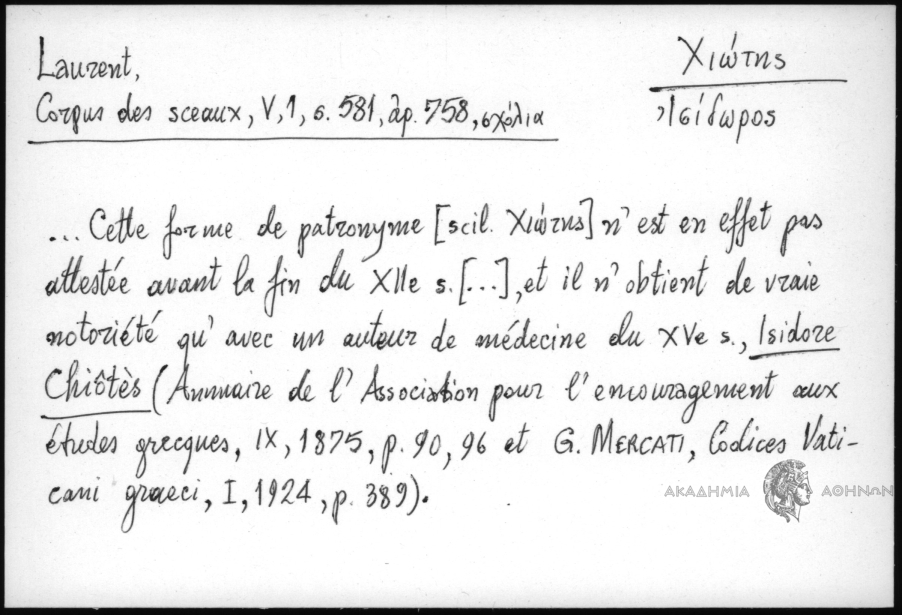 Laurent,
Corpus des sceaux, V, 1, σ. 581, ἀρ. 758, σχόλια
Χιώτης
Ἰσίδωρος
... Cette forme de patronyme [scil. Χιώτης] n'est en effet pas
attestée avant la fin du XIIe s. [...], et il n'obtient de vraie
notoriété qu'avec un auteur de médecine du XVe s., Isidore
Chiôtès (Annuaire de l'Association pour l'encouragement aux
études grecques, IX, 1875, p. 90, 96 et G. MERCATI, Codices Vati-
cani graeci, I, 1924, p. 389).
ΑΚΑΔΗΜΙΑ ΑΘΗΝΩΝ